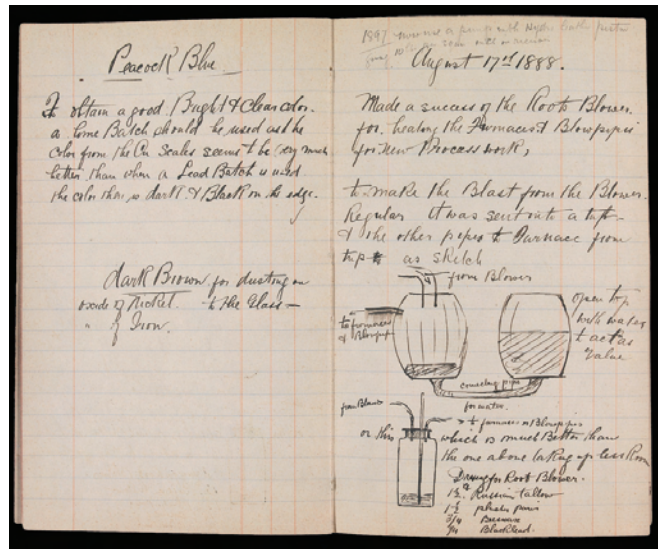 Peacock Blue.
To obtain a good Bright & Clear color.
a Lime Batch should be used and the
color from the Cu Scales seems to be very much
better than when a Lead Batch is used
the color then is dark & Black on the edge.
dark Brown for dusting on
oxide of Nickel. to the Glass —
" of Iron.
1897
August 17th 1888.
Made a success of the Root Blower.
for heating the Furnaces & Blowpipes
for New Process work,
to make the Blast from the Blower.
Regular It was sent into a tub
& the other pipe to Furnace from
tub as sketch
from Blower
to furnaces
& Blowpipes
open top
with water
to act as
Valve
connecting pipe
for water.
from Blower
to furnaces or Blowpipes
or this
which is much Better than
the one above taking up less Room
for Root Blower.
1½ Russian tallow
1½
3/4 Beeswax
Blacklead.